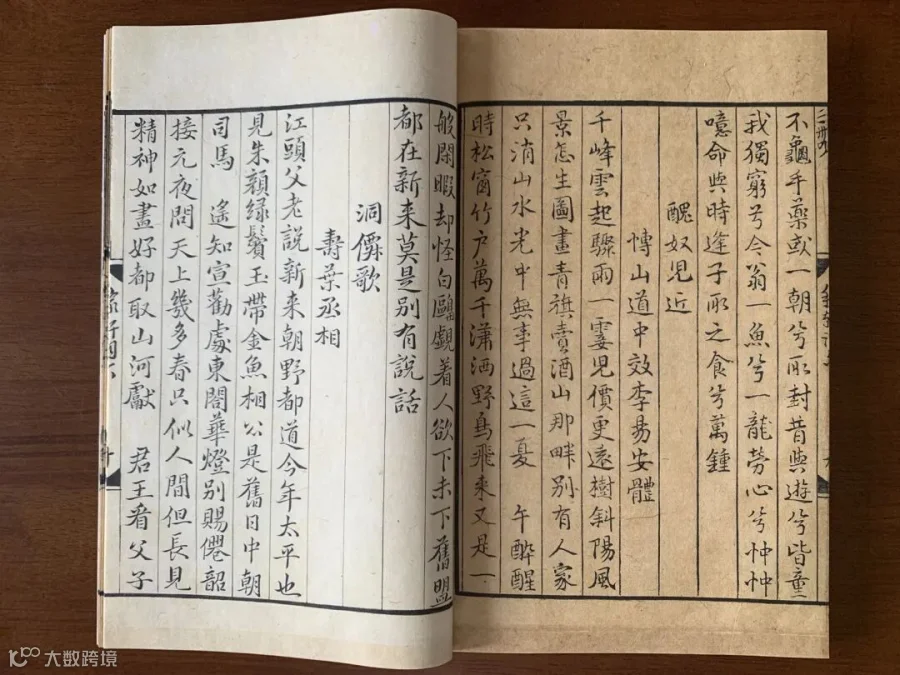 不龜手藥或一朝兮所封昔與遊兮皆童
我獨窮兮今翁一魚兮一龍勞心兮忡忡
噫命與時逢子所之食兮萬鍾
醜奴兒近
博山道中效李易安體
千峰雲起驟雨一霎兒價更遠樹斜陽風
景怎生圖畫青旗賣酒山那畔別有人家
只消山水光中無事過這一夏 午醉醒
時松窗竹戶萬千瀟洒野鳥飛來又是一
般閑暇却怪白鷗覷着人欲下未下舊盟
都在新来莫是別有說話
洞僊歌
壽葉丞相
江頭父老說新来朝野都道今年太平也
見朱顏綠鬢玉帶金魚相公是舊日中朝
司馬 遙知宣勸處東閤華燈別賜僊韶
接元夜問天上幾多春只似人間但長見
精神如畫好都取山河獻 君王看父子
大数跨境